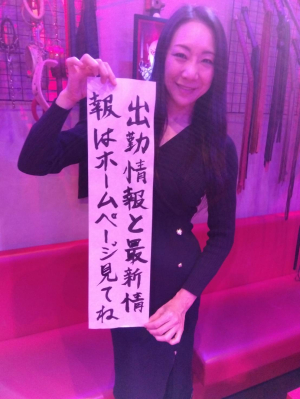 出勤情報と最新情
報はホームページ見てね